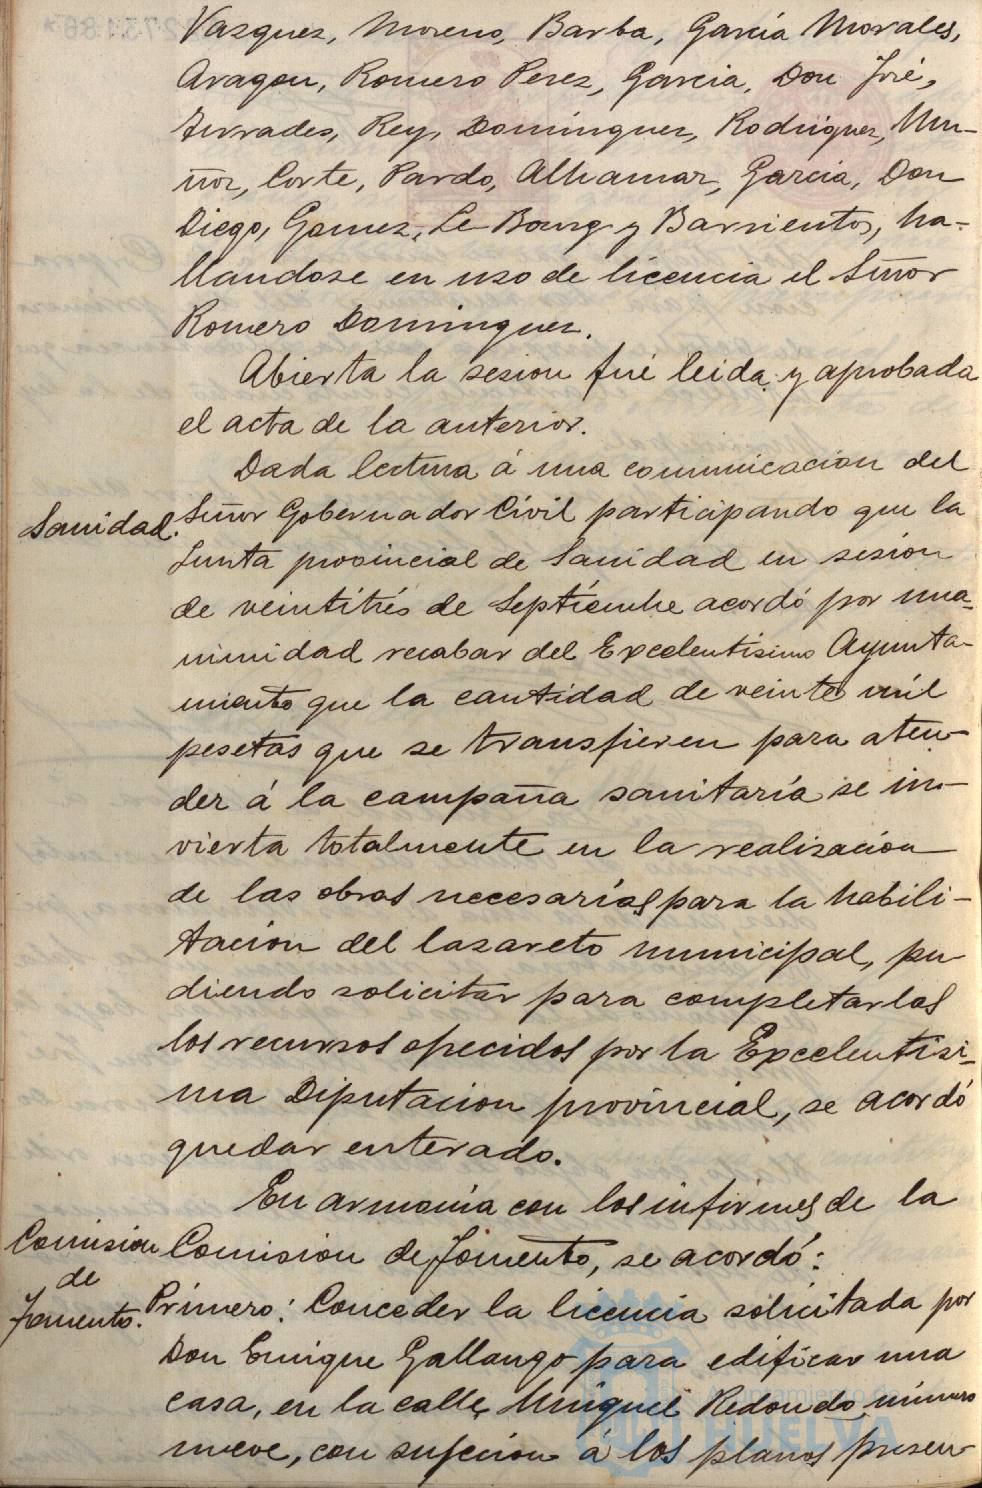 Vazquez, Moreno, Barba, García Morales,
Aragon, Romero Perez, Garcia, Don José,
Terrades, Rey, Dominguez, Rodriguez, Mu-
ñoz, Corte, Pardo, Alhamar, Garcia, Don
Diego, Gomez, Le Bourg y Barrientos, ha-
llandose en uso de licencia el Señor
Romero Dominguez.
Abierta la sesion fué leida y aprobada
el acta de la anterior.
Dada lectura á una comunicacion del
Sanidad. Señor Gobernador Civil participando que la
Junta provincial de Sanidad en sesion
de veintitrés de Septiembre acordó por una-
nimidad recabar del Excelentísimo Ayunta-
miento que la cantidad de veinte mil
pesetas que se transfieren para aten-
der á la campaña sanitaría se in-
vierta totalmente en la realizacion
de las obras necesarías para la habili-
tacion del lazareto municipal, pu-
diendo solicitar para completarlas
los recursos ofrecidos por la Excelentísi-
ma Diputacion provincial, se acordó
quedar enterado.
En armonía con los informes de la
Comision Comision de Fomento, se acordó:
de
Fomento. Primero: Conceder la licencia solicitada por
Don Enrique Gallango para edificar una
casa, en la calle Miguel Redondo número
nueve, con sujecion á los planos presen-
Ayuntamiento de
HUELVA